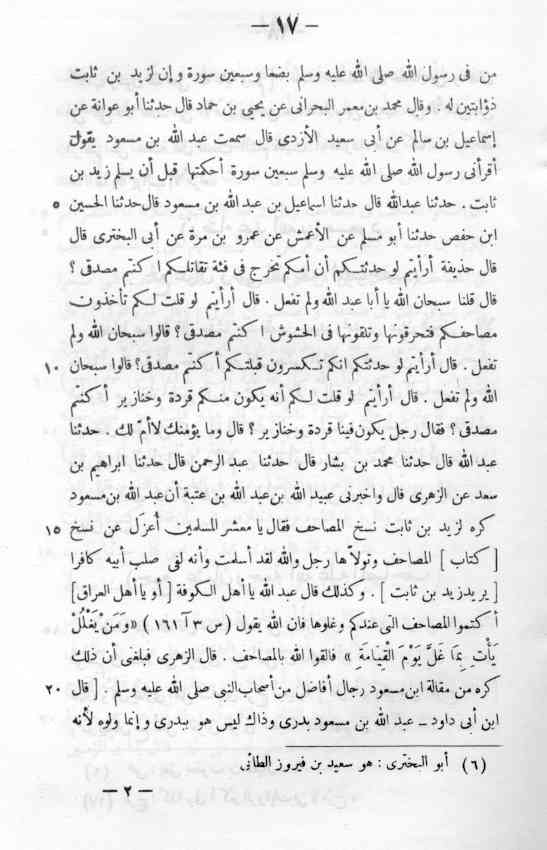 — ١٧ —
من فى رسول الله صلى الله عليه وسلم بضعا وسبعين سورة وإن لزيد بن ثابت
ذؤابتين له . وقال محمد بن معمر البحرانى عن يحيى بن حماد قال حدثنا أبو عوانة عن
إسماعيل بن سالم عن أبى سعيد الأزدى قال سمعت عبد الله بن مسعود يقول
أقرأنى رسول الله صلى الله عليه وسلم سبعين سورة أحكمتها قبل أن يسلم زيد بن
ثابت . حدثنا عبد الله قال حدثنا اسماعيل بن عبد الله بن مسعود قال حدثنا الحسين ٥
ابن حفص حدثنا أبو مسلم عن الأعمش عن عمرو بن مرة عن أبى البخترى قال
قال حذيفة أرأيتم لو حدثتكم أن أمكم تخرج فى فئة تقاتلكم ا كنتم مصدقى ؟
قال قلنا سبحان الله يا أبا عبد الله ولم تفعل . قال أرأيتم لو قلت لكم تأخذون
مصاحفكم فتحرقونها وتلقونها فى الحشوش ا كنتم مصدقى ؟ قالوا سبحان الله ولم
تفعل . قال أرأيتم لو حدثتكم انكم تكسرون قبلتكم أ كنتم مصدقى؟ قالوا سبحان ١٠
الله ولم تفعل . قال أرأيتم لو قلت لكم أنه يكون منكم قردة وخنازير أ كنتم
مصدقى ؟ فقال رجل يكون فينا قردة وخنازير ؟ قال وما يؤمنك لا أم لك . حدثنا
عبد الله قال حدثنا محمد بن بشار قال حدثنا عبد الرحمن قال حدثنا ابراهيم بن
سعد عن الزهرى قال واخبرنى عبيد الله بن عبد الله بن عتبة أن عبد الله بن مسعود
كره لزيد بن ثابت نسخ المصاحف فقال يا معشر المسلمين أعزل عن نسخ ١٥
[ كتاب ] المصاحف وتولاها رجل والله لقد أسلمت وأنه لفى صلب أبيه كافرا
[ يريد زيد بن ثابت ] . وكذلك قال عبد الله يا أهل الكوفة [ أو يا أهل العراق]
أكتموا المصاحف التى عندكم وغلوها فان الله يقول (س ٣ آ ١٦١ ) «وَمَنْ يَغْلُلْ
يَأْتِ بِمَا غَلَّ يَوْمَ الْقِيَامَةِ » فالقوا الله بالمصاحف . قال الزهرى فبلغنى أن ذلك
كره من مقالة ابن مسعود رجال أفاضل من أصحاب النبى صلى الله عليه وسلم . [ قال ٢٠
ابن أبى داود ــ عبد الله بن مسعود بدرى وذاك ليس هو ببدرى وإنما ولوه لأنه
(٦) أبو البخترى : هو سعيد بن فيروز الطائى
— ٢ —